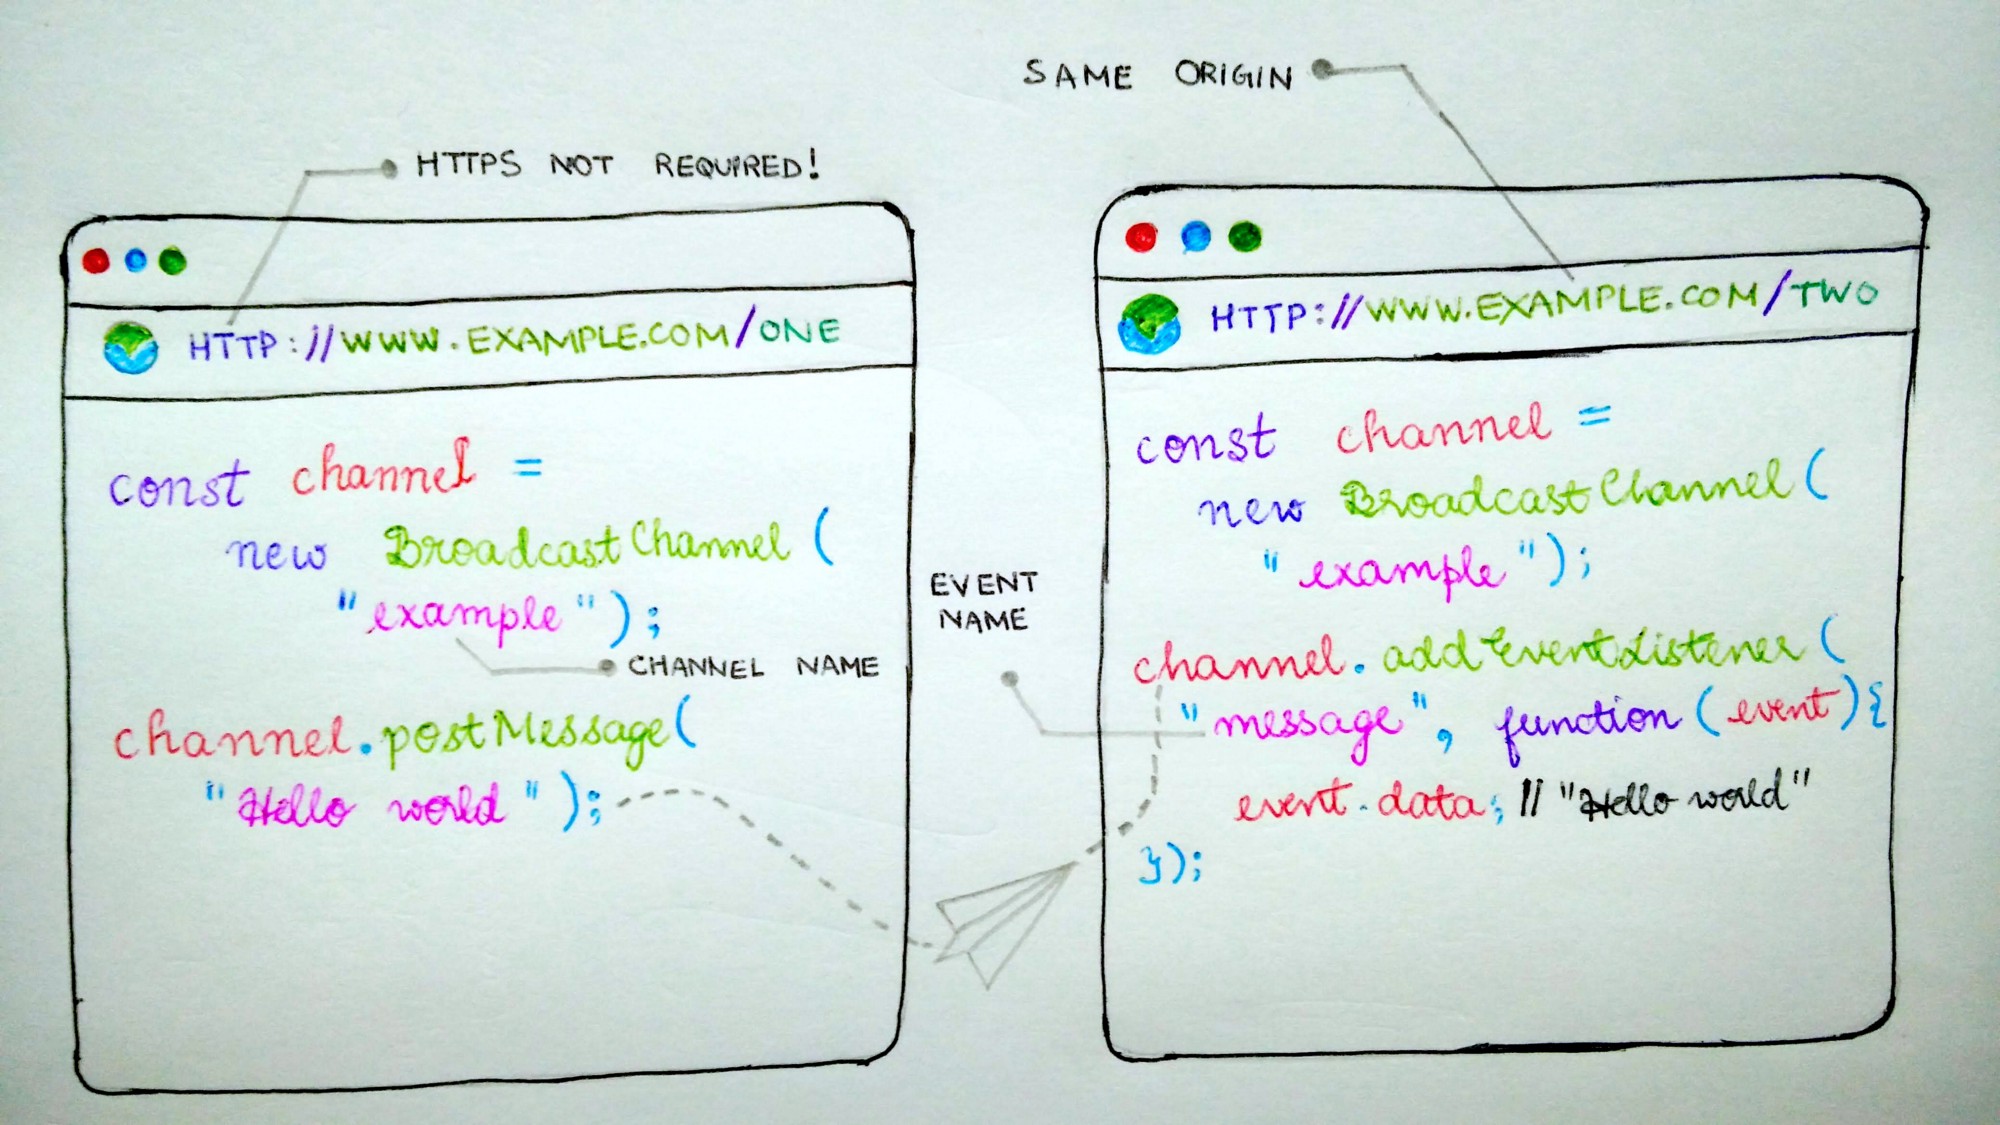 SAME ORIGIN
HTTPS NOT REQUIRED!
HTTP://WWW.EXAMPLE.COM/ONE
const channel =
new BroadcastChannel(
"example");
CHANNEL NAME
channel.postMessage(
"Hello world");
EVENT
NAME
HTTP://WWW.EXAMPLE.COM/TWO
const channel =
new BroadcastChannel(
"example");
channel.addEventListener(
"message", function(event){
event.data; // "Hello world"
});